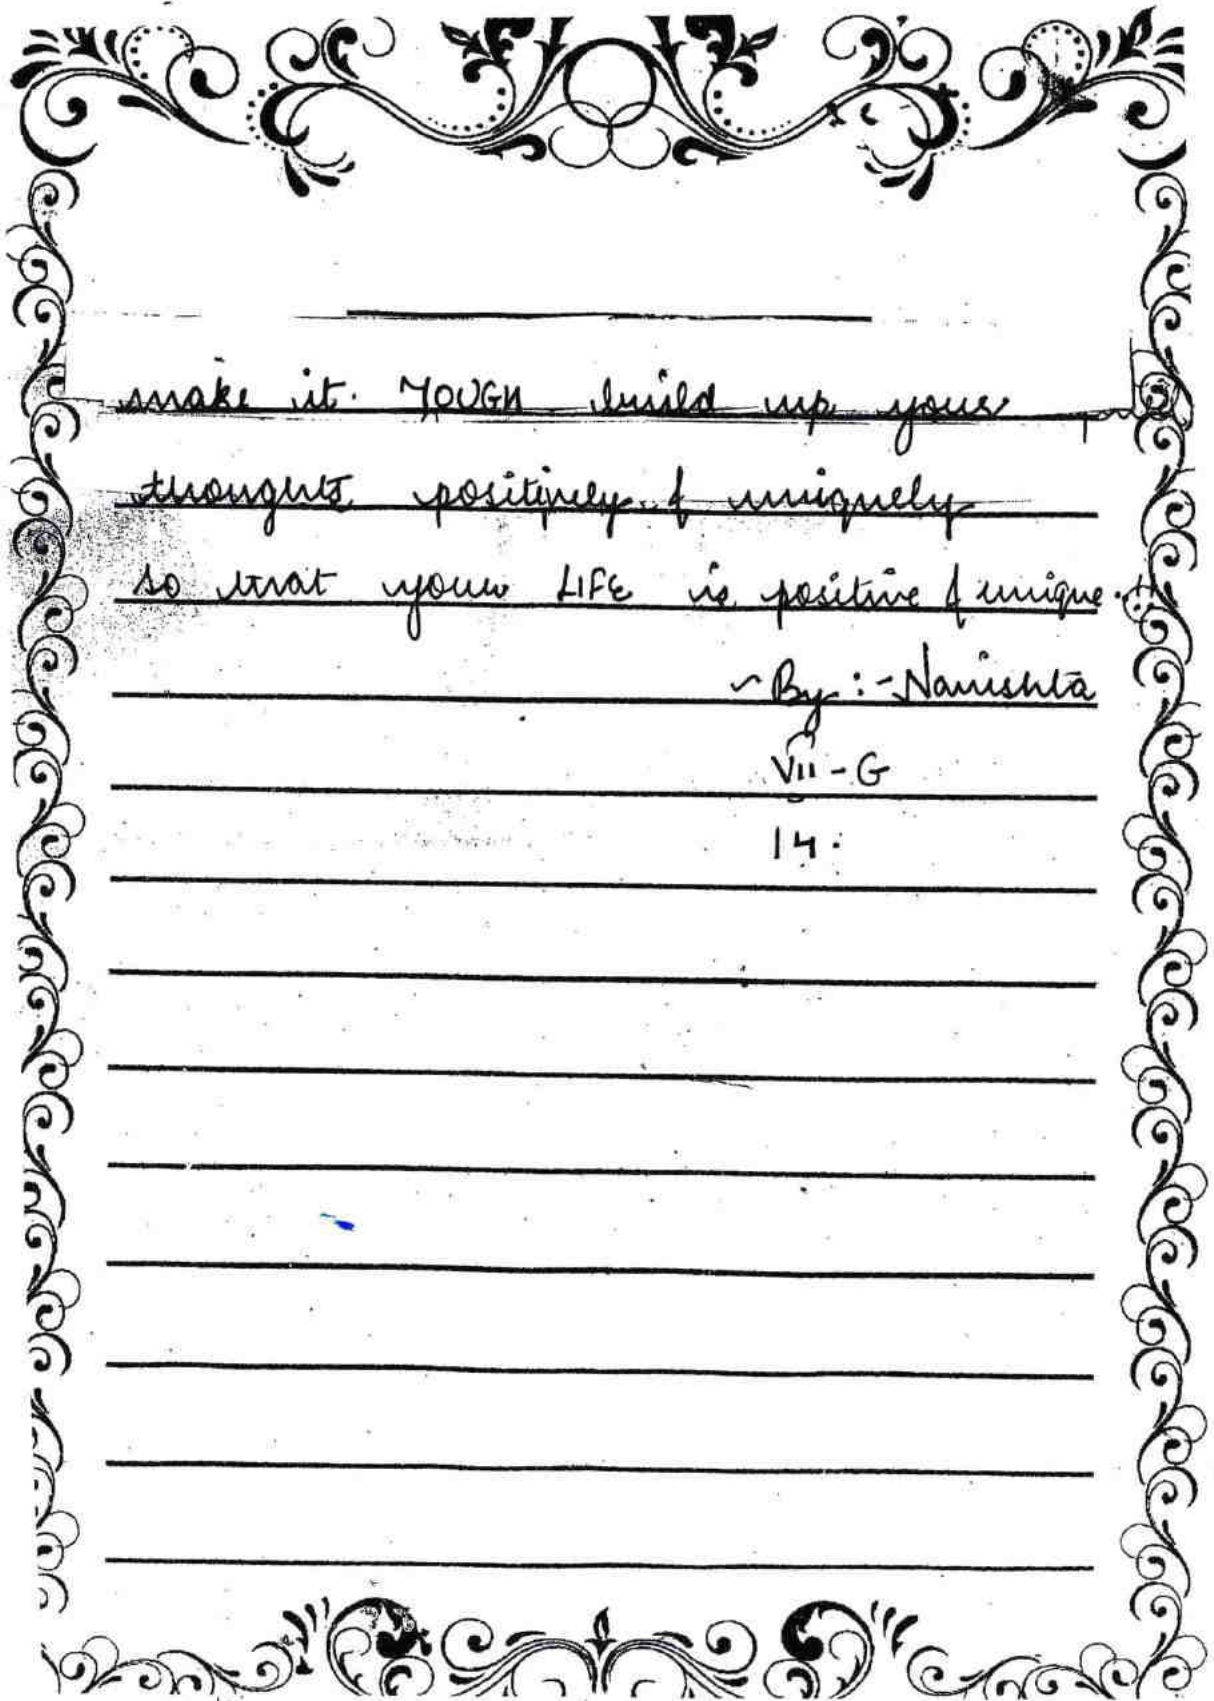 make it TOUGH build up your
thoughts positively & uniquely
so that your LIFE is positive & unique.
~ By :- Navishta
VII - G
14.